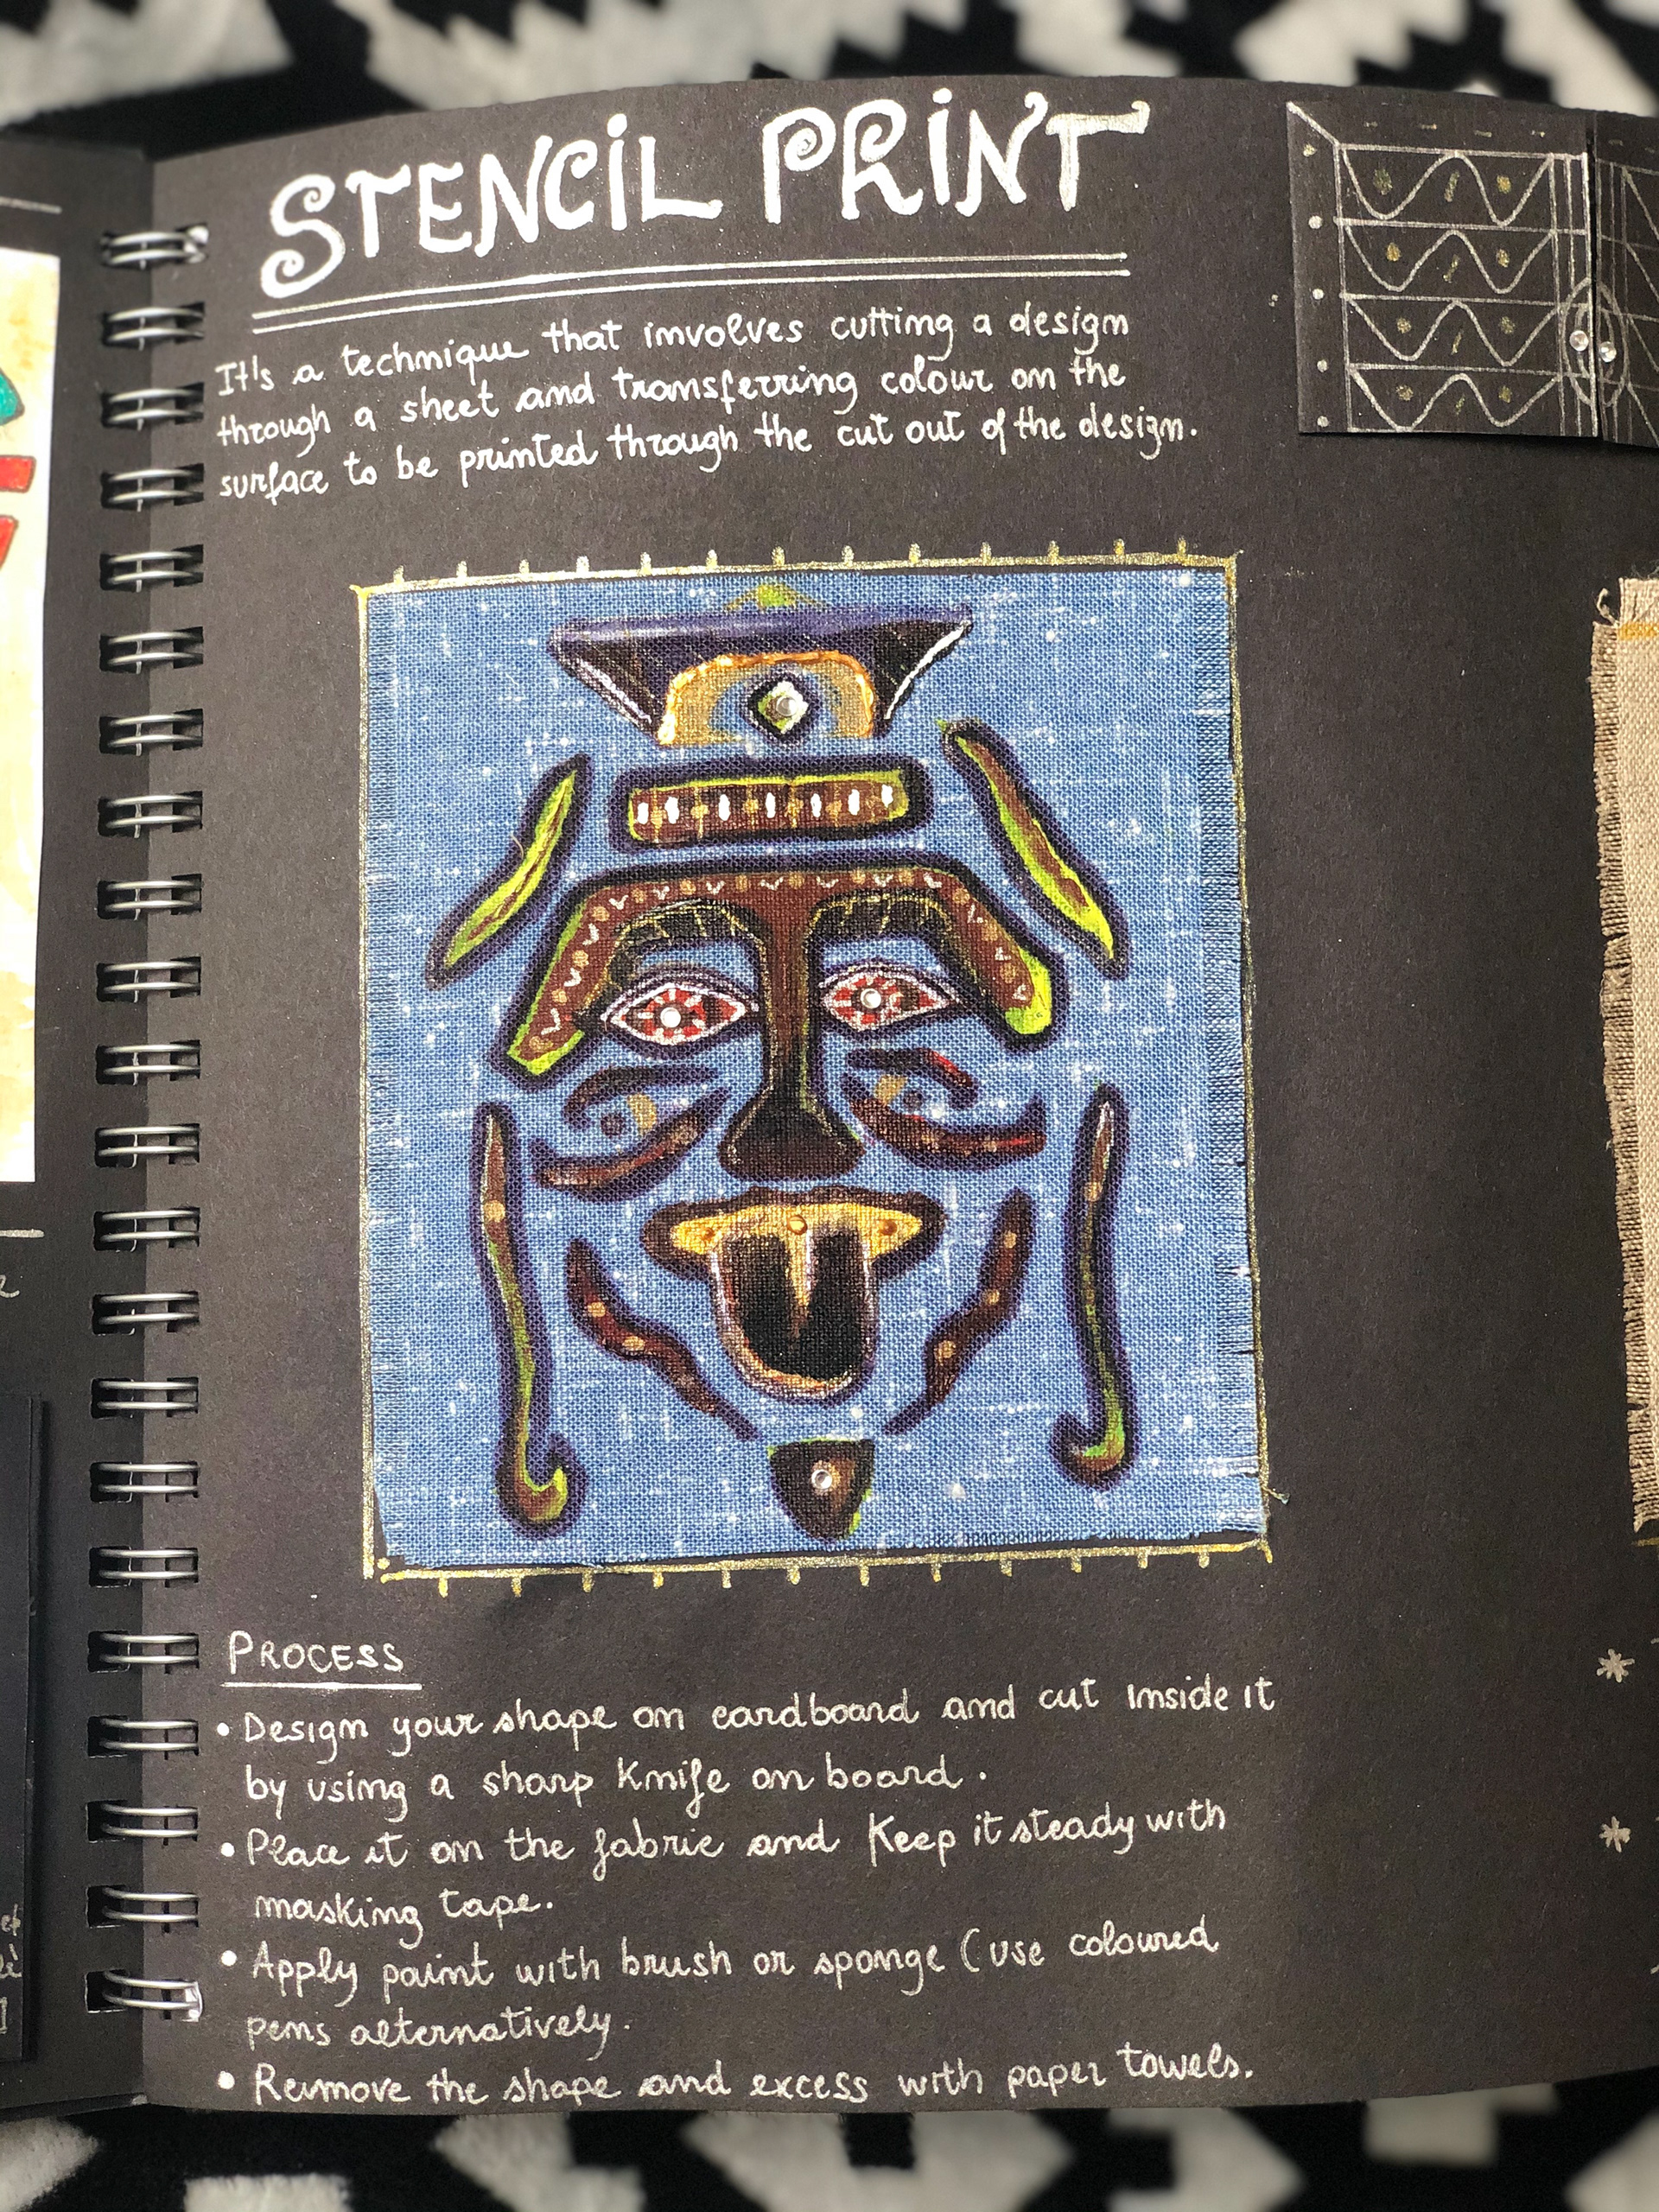 STENCIL PRINT
It's a technique that involves cutting a design
through a sheet and transferring colour on the
surface to be printed through the cut out of the design.
PROCESS
• Design your shape on cardboard and cut inside it
by using a sharp knife on board.
• Place it on the fabric and keep it steady with
masking tape.
• Apply paint with brush or sponge (use coloured
pens alternatively.
• Remove the shape and excess with paper towels.